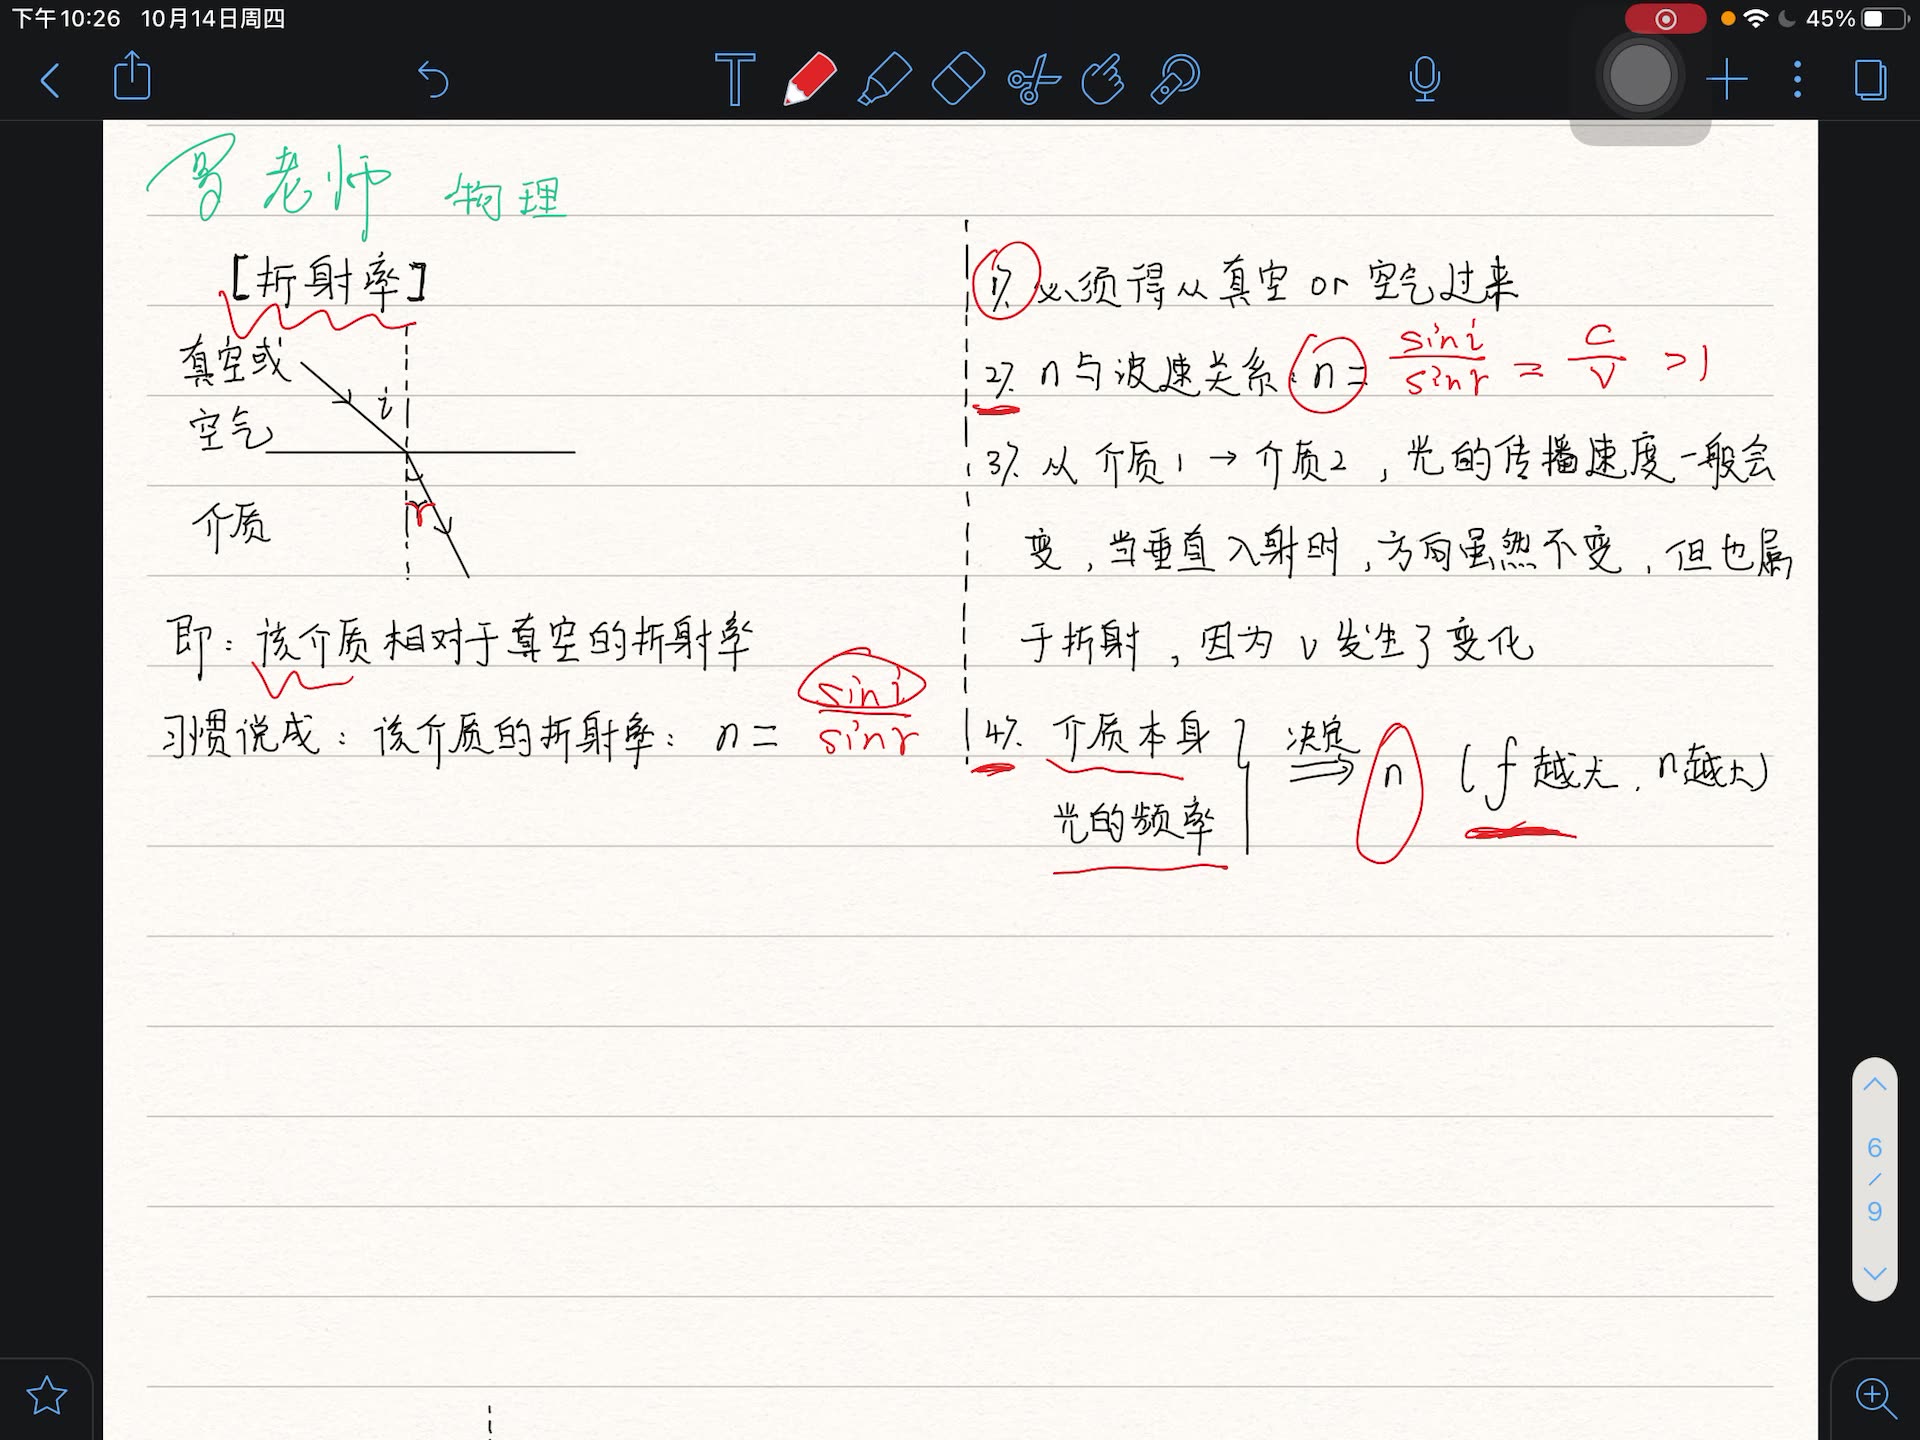 下午10:26 10月14日周四
45%
老师 物理
[折射率]
真空或
空气
i
介质
r
即：该介质相对于真空的折射率
习惯说成：该介质的折射率：n = sin i / sin r
1). 必须得从真空 or 空气过来
2). n与波速关系：n = sin i / sin r = c / v >1
3). 从介质1→介质2，光的传播速度一般会
变，当垂直入射时，方向虽然不变，但也属
于折射，因为v发生了变化
4). 介质本身
光的频率
决定
⇒ n (f越大，n越大)
6
/
9